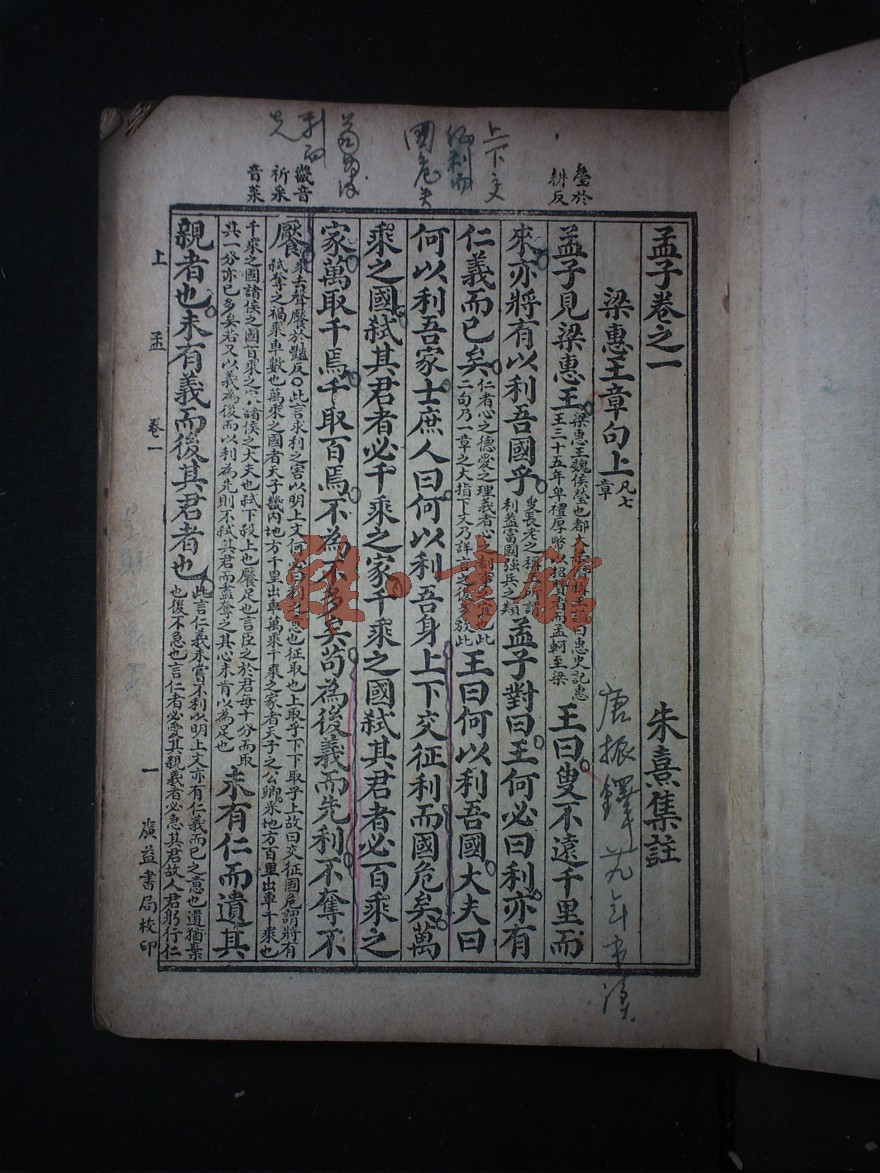 孟子卷之一
朱熹集註
梁惠王章句上
凡七
章
孟子見梁惠王
王曰叟不遠千里而
來亦將有以利吾國乎
孟子對曰王何必曰利亦有
仁義而已矣
仁者心之德愛之理義者心之制事之宜也此
二句乃一章之大指下文乃詳言之後多放此
王曰何以利吾國大夫曰
何以利吾家士庶人曰何以利吾身上下交征利而國危矣萬
乘之國弒其君者必千乘之家千乘之國弒其君者必百乘之
家萬取千焉千取百焉不為不多矣苟為後義而先利不奪不
饜
乘去聲饜於豔反此言求利之害以明上文何必曰利之意也征取也上取乎下下取乎上故曰交征國危謂將有
弒奪之禍乘車數也萬乘之國者天子畿內地方千里出車萬乘千乘之家者天子之公卿采地方百里出車千乘也
千乘之國諸侯之國百乘之家諸侯之大夫也弒下殺上也饜足也言臣之於君每十分而取
其一分亦已多矣若又以義為後而以利為先則不弒其君而盡奪之其心未肯以為足也
未有仁而遺其
親者也未有義而後其君者也
此言仁義未嘗不利以明上文亦有仁義而已之意也遺猶棄
也後不急也言仁者必愛其親義者必急其君故人君躬行仁
上孟
卷一
一
廣益書局校印
罃於
耕反
畿音
祈采
音菜
唐振鐸